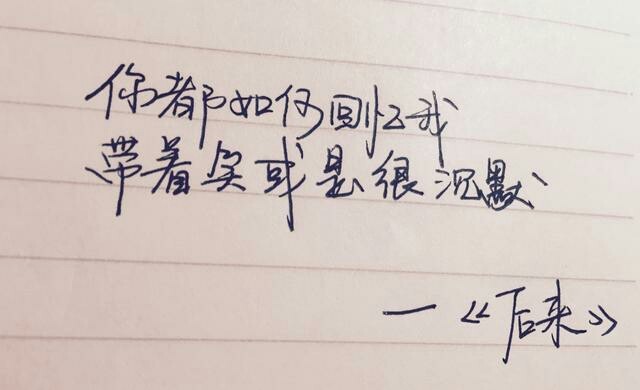 你都如何回忆我
带着笑或是很沉默
—《后来》